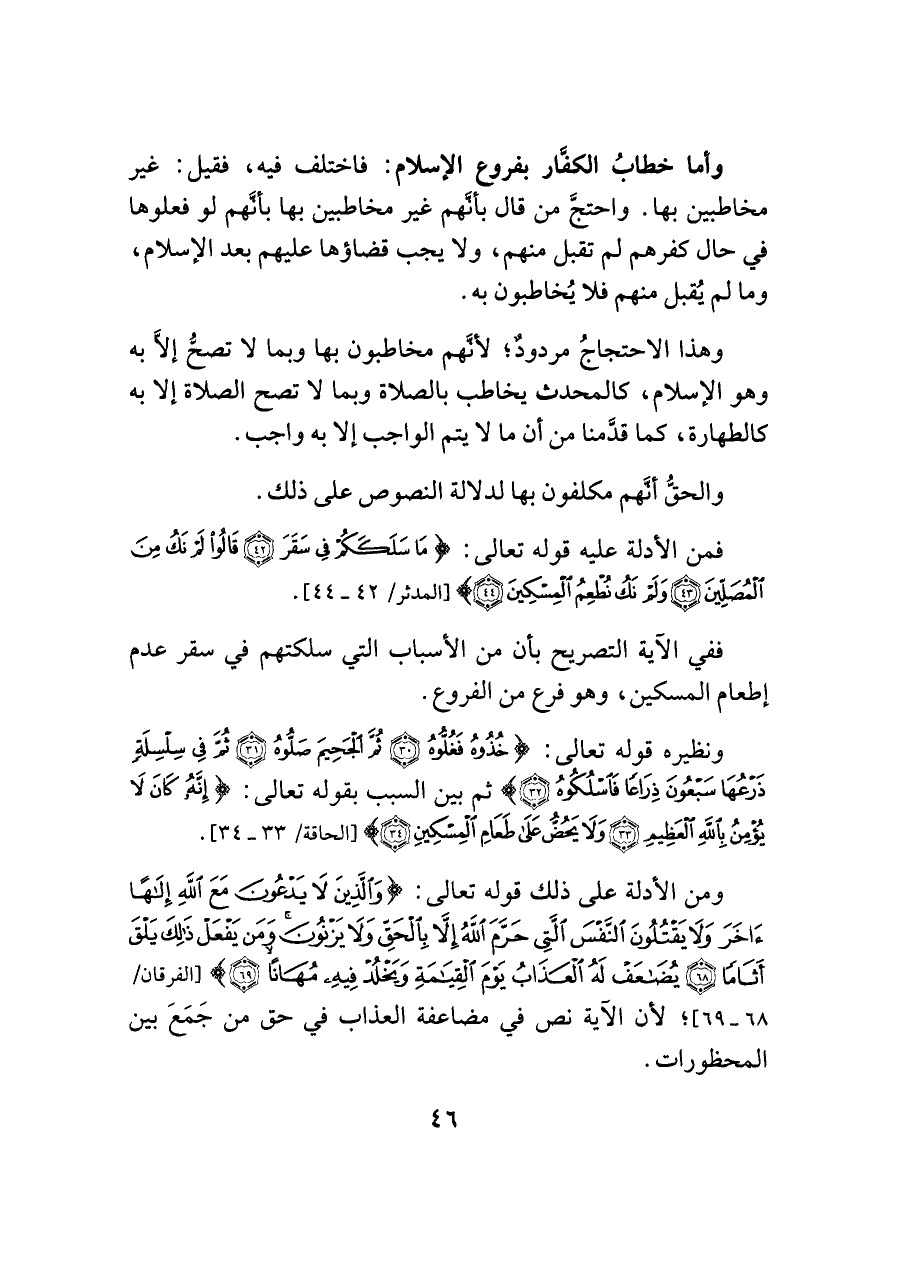 وأما خطابُ الكفَّار بفروع الإسلام: فاختلف فيه، فقيل: غير
مخاطبين بها. واحتجَّ من قال بأنَّهم غير مخاطبين بها بأنَّهم لو فعلوها
في حال كفرهم لم تقبل منهم، ولا يجب قضاؤها عليهم بعد الإسلام،
وما لم يُقبل منهم فلا يُخاطبون به.
وهذا الاحتجاجُ مردودٌ؛ لأنَّهم مخاطبون بها وبما لا تصحُّ إلاَّ به
وهو الإسلام، كالمحدث يخاطب بالصلاة وبما لا تصح الصلاة إلا به
كالطهارة، كما قدَّمنا من أن ما لا يتم الواجب إلا به واجب.
والحقُّ أنَّهم مكلفون بها لدلالة النصوص على ذلك.
فمن الأدلة عليه قوله تعالى: ﴿ مَا سَلَكَكُمْ فِي سَقَرَ ٤٢ قَالُوا۟ لَمْ نَكُ مِنَ
ٱلْمُصَلِّينَ ٤٣ وَلَمْ نَكُ نُطْعِمُ ٱلْمِسْكِينَ ٤٤ ﴾ [المدثر/ ٤٢ ـ ٤٤].
ففي الآية التصريح بأن من الأسباب التي سلكتهم في سقر عدم
إطعام المسكين، وهو فرع من الفروع.
ونظيره قوله تعالى: ﴿ خُذُوهُ فَغُلُّوهُ ٣٠ ثُمَّ ٱلْجَحِيمَ صَلُّوهُ ٣١ ثُمَّ فِي سِلْسِلَةٍ
ذَرْعُهَا سَبْعُونَ ذِرَاعًا فَٱسْلُكُوهُ ٣٢ ﴾ ثم بين السبب بقوله تعالى: ﴿ إِنَّهُۥ كَانَ لَا
يُؤْمِنُ بِٱللَّهِ ٱلْعَظِيمِ ٣٣ وَلَا يَحُضُّ عَلَىٰ طَعَامِ ٱلْمِسْكِينِ ٣٤ ﴾ [الحاقة/ ٣٣ ـ ٣٤].
ومن الأدلة على ذلك قوله تعالى: ﴿ وَٱلَّذِينَ لَا يَدْعُونَ مَعَ ٱللَّهِ إِلَٰهًا
ءَاخَرَ وَلَا يَقْتُلُونَ ٱلنَّفْسَ ٱلَّتِي حَرَّمَ ٱللَّهُ إِلَّا بِٱلْحَقِّ وَلَا يَزْنُونَۚ وَمَن يَفْعَلْ ذَٰلِكَ يَلْقَ
أَثَامًا ٦٨ يُضَٰعَفْ لَهُ ٱلْعَذَابُ يَوْمَ ٱلْقِيَٰمَةِ وَيَخْلُدْ فِيهِۦ مُهَانًا ٦٩ ﴾ [الفرقان/
٦٨ ـ ٦٩]؛ لأن الآية نص في مضاعفة العذاب في حق من جَمَعَ بين
المحظورات.
٤٦